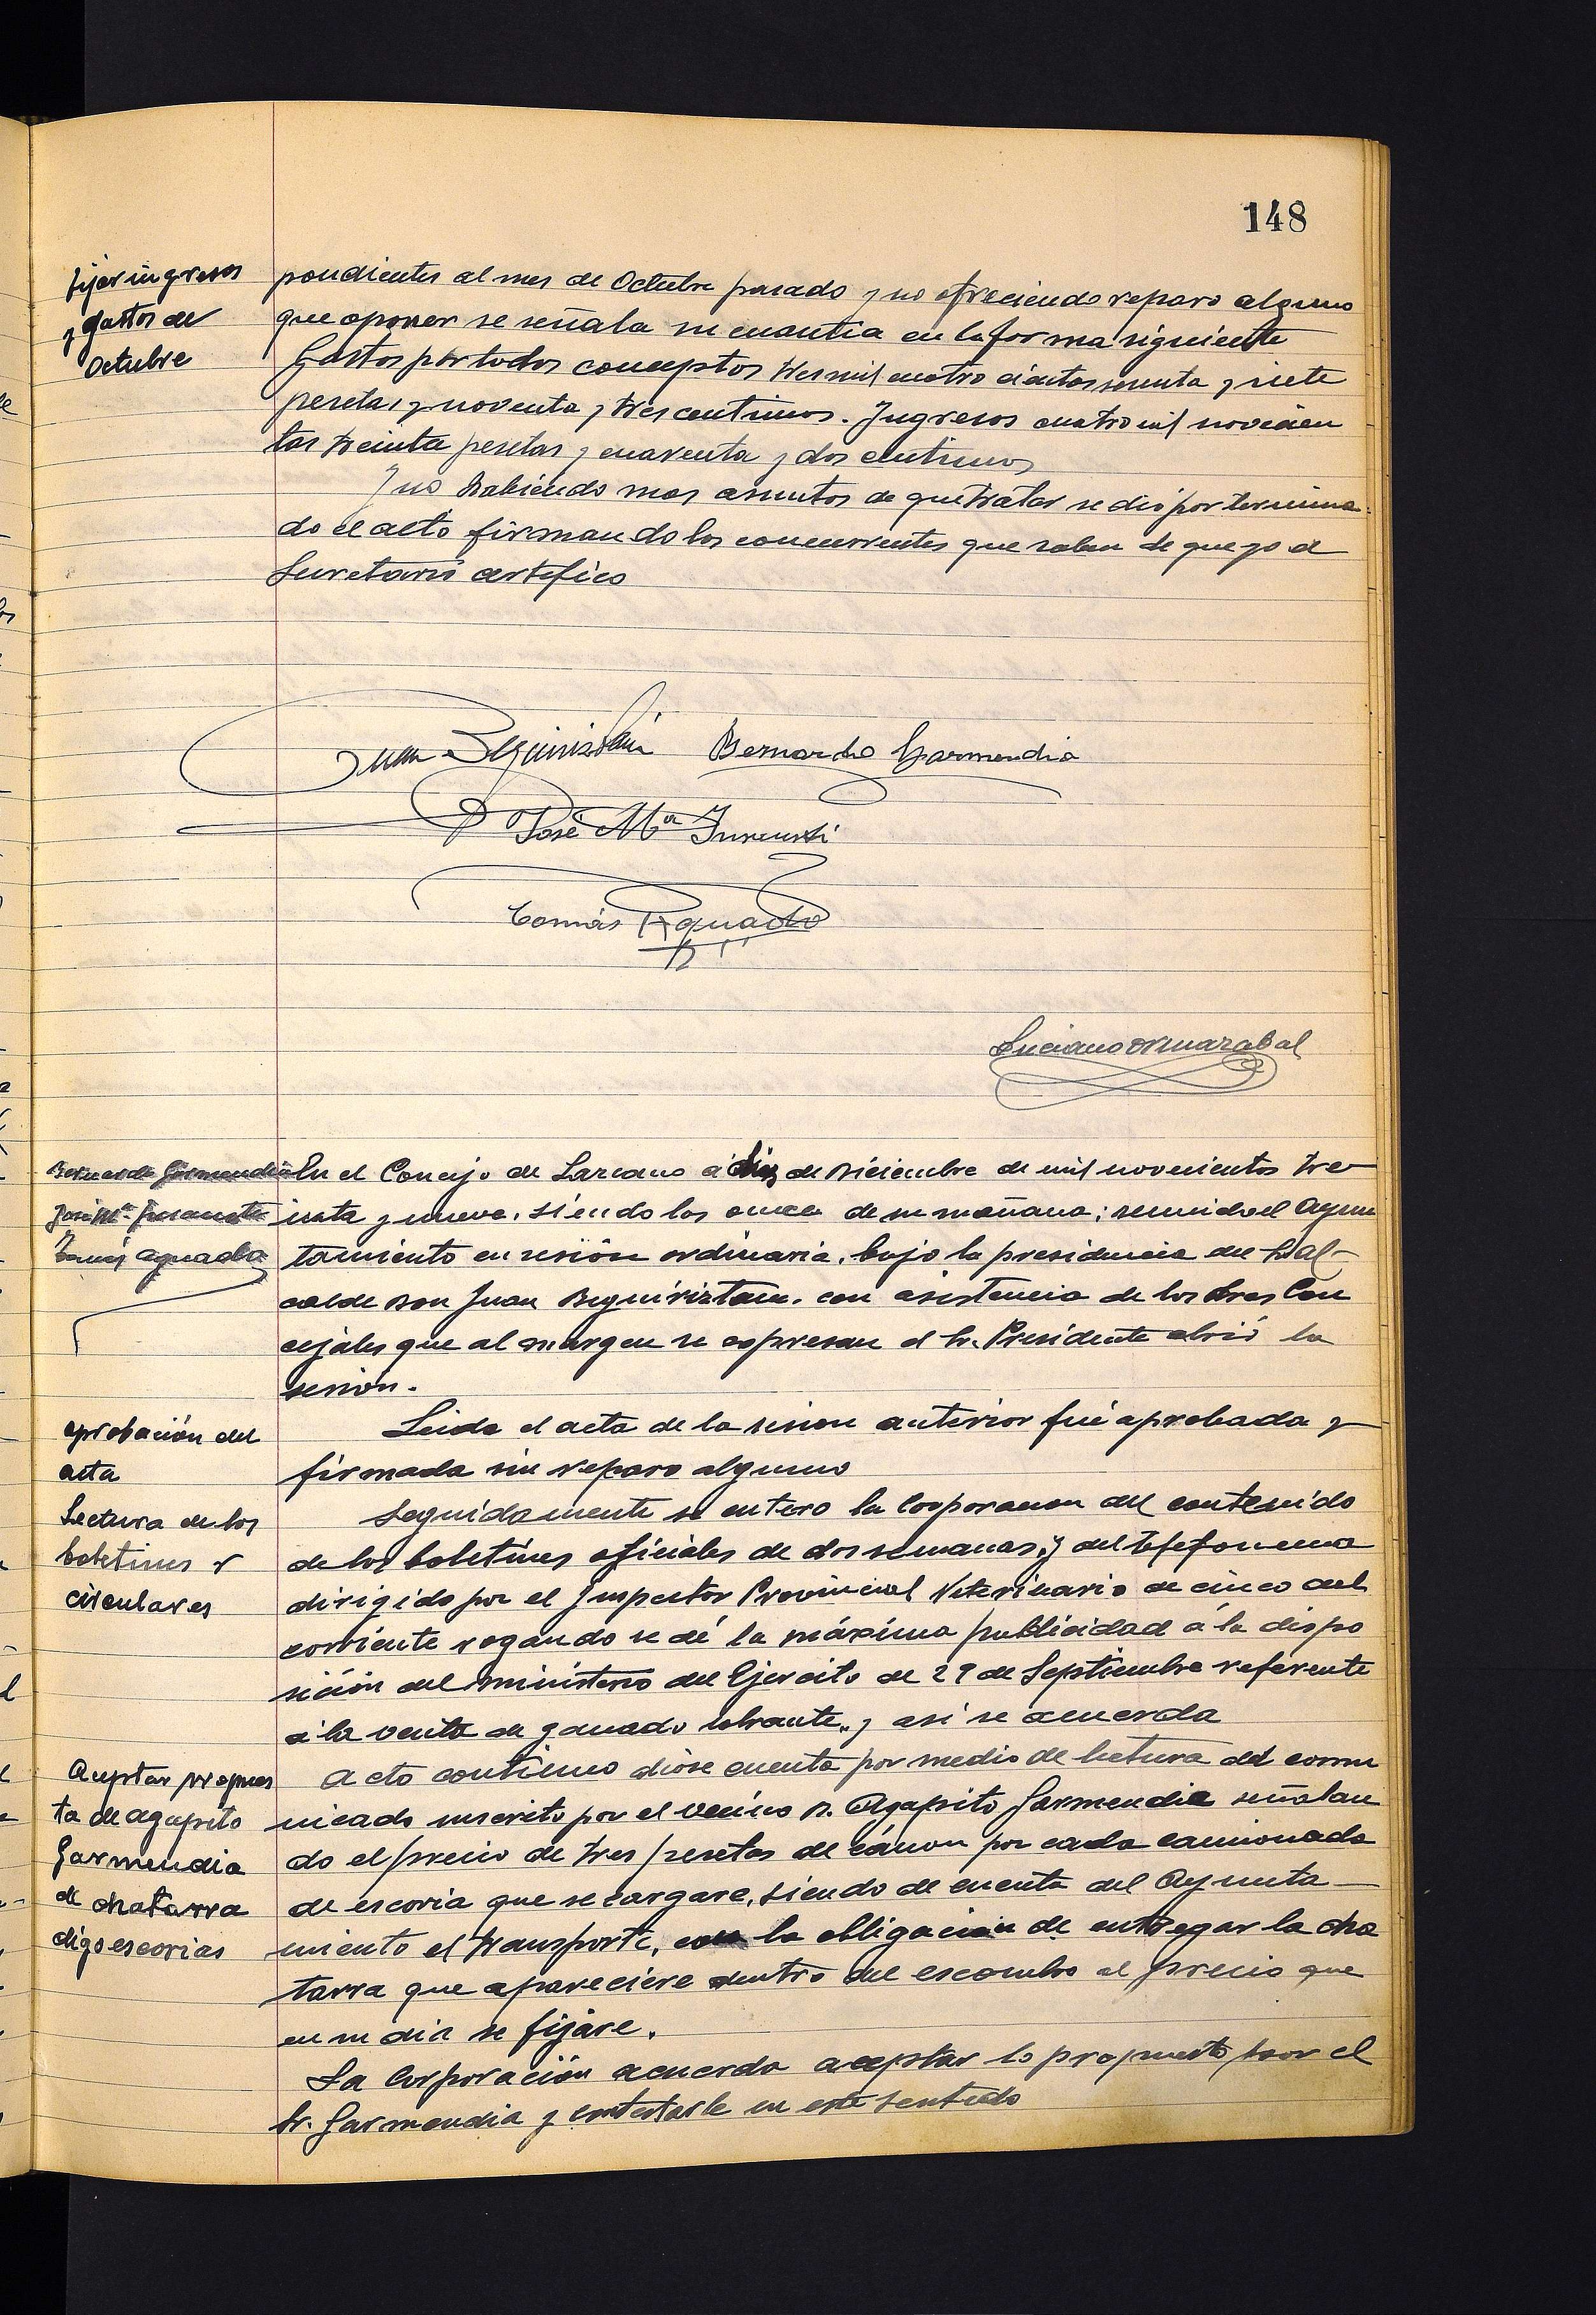 148
fijar ingresos
y gastos de
Octubre
pondientes al mes de Octubre pasado y no ofreciendo reparo alguno
que oponer se señala su cuantia en la forma siguiente
Gastos por todos conceptos tres mil cuatro cientos sesenta y siete
pesetas y noventa y tres centimos. Ingresos cuatro mil novecien
tas treinta pesetas y cuarenta y dos centimos
Y no habiendo mas asuntos de que tratar se dió por termina-
do el acto firmando los concurrentes que saben de que yo el
Secretario certefico
Juan Beguiristain Bernardo Garmendia
José Mª
Tomás Aguado
Luciano Ormazabal
Bernardo Garmendia
José Mª
Tomás Aguado
En el Concejo de Lazcano á diez de Diciembre de mil novecientos tre-
inta y nueve, siendo las once de su mañana; reunido el Ayun
tamiento en sesión ordinaria, bajo la presidencia del Sr Al-
calde Don Juan Beguiriztain, con asistencia de los Sres Con
cejales que al margen se espresan el Sr. Presidente abrió la
sesión.
aprobación del
acta
Leida el acta de la sesion anterior fué aprobada y
firmada sin reparo alguno
Lectura de los
boletines y
circulares
Seguidamente se entero la Corporacion del contenido
de los boletines oficiales de dos semanas; y del telefonema
dirigido por el Inspector Provincial Veterinario de cinco del
corriente rogando se dé la máxima publicidad á la dispo
sición del Ministerio del Ejercito de 29 de Septiembre referente
á la venta de ganado sobrante, y asi se acuerda
Aceptar propues
ta de Agapito
Garmendia
de chatarra
digo escorias
Acto contínuo dióse cuenta por medio de lectura del comu
nicado suscrito por el vecino D. Agapito Garmendia señalan
do el precio de tres pesetas de cánon por cada camionada
de escoria que se cargare, siendo de cuenta del Ayunta-
miento el transporte, con la obligación de entregar la cha
tarra que apareciere dentro del escombro al precio que
en su dia se fijare.
La Corporación acuerda aceptar lo propuesto por el
Sr. Garmendia y contestarle en este sentido